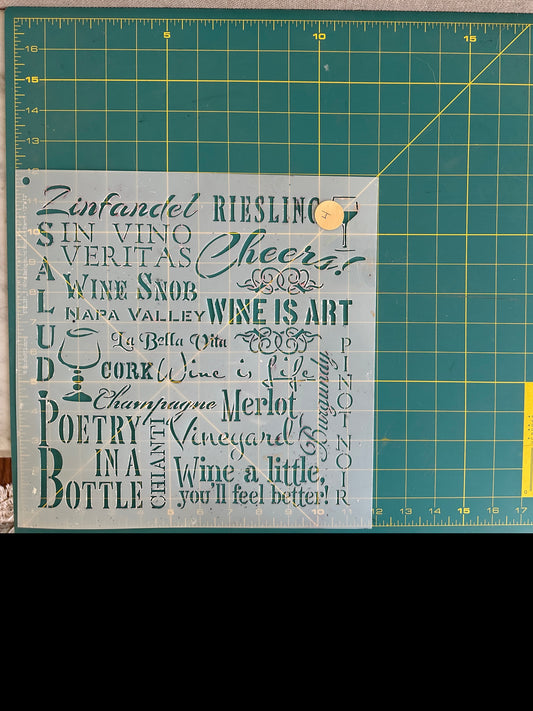 Zinfandel
RIESLING
SALUD
IN VINO
VERITAS
Cheers!
WINE SNOB
NAPA VALLEY
WINE IS ART
La Bella Vita
CORK
Wine is life
PINOT NOIR
Burgundy
Champagne
Merlot
POETRY
IN A
BOTTLE
CHIANTI
Vineyard
Wine a little,
you'll feel better!
5
10
15
16
15
14
13
12
11
10
5
10
11
12
13
14
15
16
17